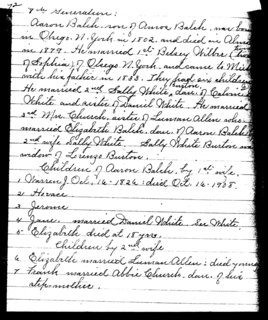 7th Generation:
Aaron Balch, son of Aaron Balch, was born
in Otsego, N. York in 1802, and died in
in 1879. He married 1st Betsey Wilber,
of Sophia, of Otsego N. York, and came to Mich.
with his father in 1833. They had six children
He married 2nd Sally White Burton, dau. of
White and sister of Daniel White. He married
3rd Mrs. Church, sister of Luman Allen who
married Elizabeth Balch, dau. of Aaron Balch.
2nd wife Sally White. Sally White Burton was
widow of Lorenzo Burton.
Children of Aaron Balch, by 1st wife.
1 Warren J. Oct. 16 - 1826: died Oct. 16 - 1908.
2 Horace
3 Jerome
4 Jane. married Daniel White. See White.
5 Elizabeth died at 18 yrs.
Children by 2nd wife
6 Elizabeth married Luman Allen; died young
7 Frank married Abbie Church, dau. of his
step mother.